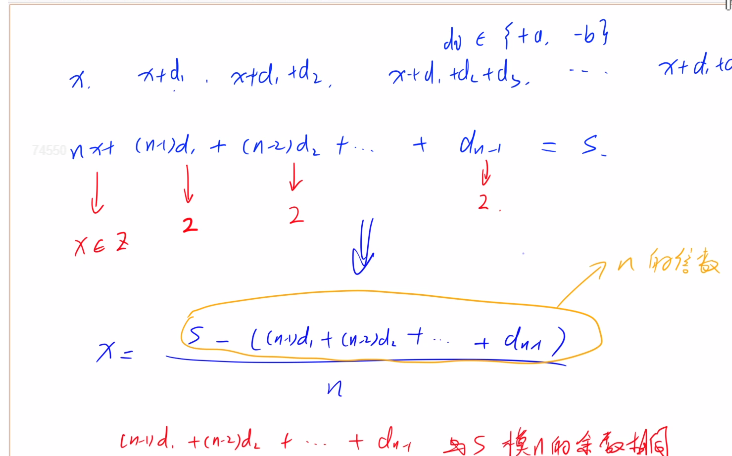 di ∈ {+a, -b}
x, x+d₁, x+d₁+d₂, x+d₁+d₂+d₃, ... x+d₁+d
74550
nx+ (n-1)d₁ + (n-2)d₂ + ... + dn-1 = S
x∈Z 2 2 2
n的倍数
x = S - ((n-1)d₁ + (n-2)d₂ + ... + dn-1)
n
(n-1)d₁ + (n-2)d₂ + ... + dn-1 与S模n的余数相同